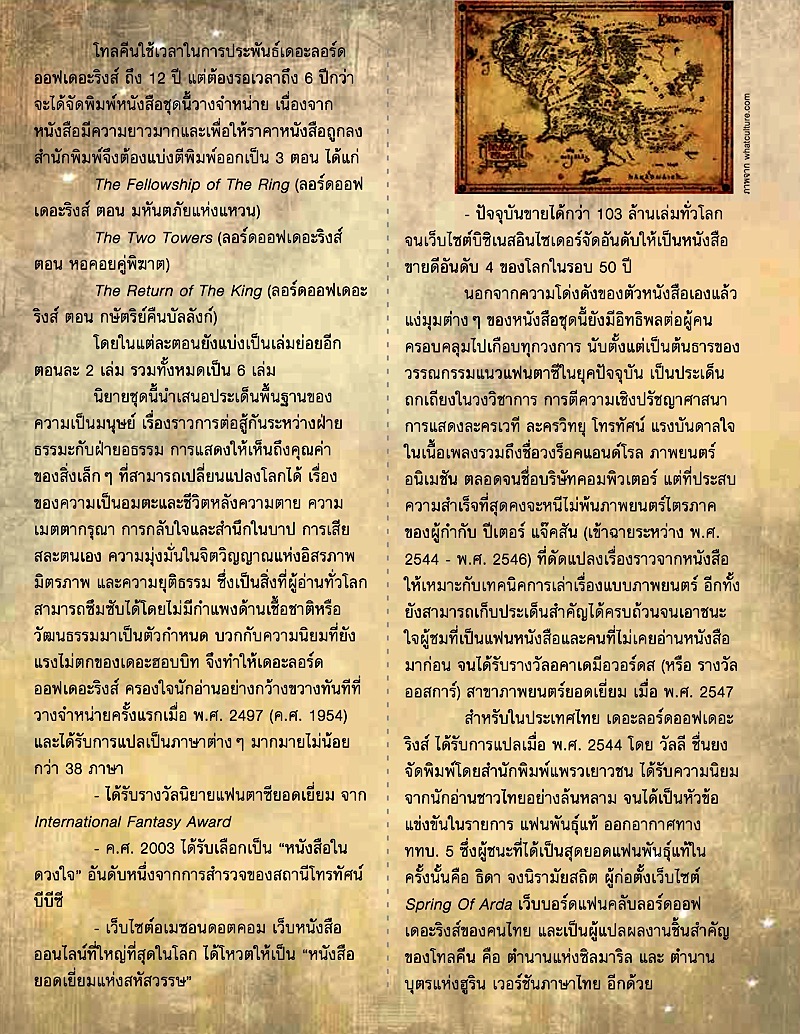 โทลคีนใช้เวลาในการประพันธ์เดอะลอร์ด
ออฟเดอะริงส์ ถึง 12 ปี แต่ต้องรอเวลาถึง 6 ปีกว่า
จะได้จัดพิมพ์หนังสือชุดนี้วางจำหน่าย เนื่องจาก
หนังสือมีความยาวมากและเพื่อให้ราคาหนังสือถูกลง
สำนักพิมพ์จึงต้องแบ่งตีพิมพ์ออกเป็น 3 ตอน ได้แก่
The Fellowship of The Ring (ลอร์ดออฟ
เดอะริงส์ ตอน มหันตภัยแห่งแหวน)
The Two Towers (ลอร์ดออฟเดอะริงส์
ตอน หอคอยคู่พิฆาต)
The Return of The King (ลอร์ดออฟเดอะ
ริงส์ ตอน กษัตริย์คืนบัลลังก์)
โดยในแต่ละตอนยังแบ่งเป็นเล่มย่อยอีก
ตอนละ 2 เล่ม รวมทั้งหมดเป็น 6 เล่ม
นิยายชุดนี้นำเสนอประเด็นพื้นฐานของ
ความเป็นมนุษย์ เรื่องราวการต่อสู้กันระหว่างฝ่าย
ธรรมะกับฝ่ายอธรรม การแสดงให้เห็นถึงคุณค่า
ของสิ่งเล็ก ๆ ที่สามารถเปลี่ยนแปลงโลกได้ เรื่อง
ของความเป็นอมตะและชีวิตหลังความตาย ความ
เมตตากรุณา การกลับใจและสำนึกในบาป การเสีย
สละตนเอง ความมุ่งมั่นในจิตวิญญาณแห่งอิสรภาพ
มิตรภาพ และความยุติธรรม ซึ่งเป็นสิ่งที่ผู้อ่านทั่วโลก
สามารถซึมซับได้โดยไม่มีกำแพงด้านเชื้อชาติหรือ
วัฒนธรรมมาเป็นตัวกำหนด บวกกับความนิยมที่ยัง
แรงไม่ตกของเดอะฮอบบิท จึงทำให้เดอะลอร์ด
ออฟเดอะริงส์ ครองใจนักอ่านอย่างกว้างขวางทันทีที่
วางจำหน่ายครั้งแรกเมื่อ พ.ศ. 2497 (ค.ศ. 1954)
และได้รับการแปลเป็นภาษาต่าง ๆ มากมายไม่น้อย
กว่า 38 ภาษา
- ได้รับรางวัลนิยายแฟนตาซียอดเยี่ยม จาก
International Fantasy Award
- ค.ศ. 2003 ได้รับเลือกเป็น “หนังสือใน
ดวงใจ” อันดับหนึ่งจากการสำรวจของสถานีโทรทัศน์
บีบีซี
- เว็บไซต์อเมซอนดอตคอม เว็บหนังสือ
ออนไลน์ที่ใหญ่ที่สุดในโลก ได้โหวตให้เป็น “หนังสือ
ยอดเยี่ยมแห่งสหัสวรรษ”
LORD OF THE RINGS
ภาพจาก whatculture.com
- ปัจจุบันขายได้กว่า 103 ล้านเล่มทั่วโลก
จนเว็บไซต์บิซิเนสอินไซเดอร์จัดอันดับให้เป็นหนังสือ
ขายดีอันดับ 4 ของโลกในรอบ 50 ปี
นอกจากความโด่งดังของตัวหนังสือเองแล้ว
แง่มุมต่าง ๆ ของหนังสือชุดนี้ยังมีอิทธิพลต่อผู้คน
ครอบคลุมไปเกือบทุกวงการ นับตั้งแต่เป็นต้นธารของ
วรรณกรรมแนวแฟนตาซีในยุคปัจจุบัน เป็นประเด็น
ถกเถียงในวงวิชาการ การตีความเชิงปรัชญาศาสนา
การแสดงละครเวที ละครวิทยุ โทรทัศน์ แรงบันดาลใจ
ในเนื้อเพลงรวมถึงชื่อวงร็อคแอนด์โรล ภาพยนตร์
อนิเมชัน ตลอดจนชื่อบริษัทคอมพิวเตอร์ แต่ที่ประสบ
ความสำเร็จที่สุดคงจะหนีไม่พ้นภาพยนตร์ไตรภาค
ของผู้กำกับ ปีเตอร์ แจ็คสัน (เข้าฉายระหว่าง พ.ศ.
2544 - พ.ศ. 2546) ที่ดัดแปลงเรื่องราวจากหนังสือ
ให้เหมาะกับเทคนิคการเล่าเรื่องแบบภาพยนตร์ อีกทั้ง
ยังสามารถเก็บประเด็นสำคัญได้ครบถ้วนจนเอาชนะ
ใจผู้ชมที่เป็นแฟนหนังสือและคนที่ไม่เคยอ่านหนังสือ
มาก่อน จนได้รับรางวัลอคาเดมีอวอร์ดส (หรือ รางวัล
ออสการ์) สาขาภาพยนตร์ยอดเยี่ยม เมื่อ พ.ศ. 2547
สำหรับในประเทศไทย เดอะลอร์ดออฟเดอะ
ริงส์ ได้รับการแปลเมื่อ พ.ศ. 2544 โดย วัลลี ชื่นยง
จัดพิมพ์โดยสำนักพิมพ์แพรวเยาวชน ได้รับความนิยม
จากนักอ่านชาวไทยอย่างล้นหลาม จนได้เป็นหัวข้อ
แข่งขันในรายการ แฟนพันธุ์แท้ ออกอากาศทาง
ททบ. 5 ซึ่งผู้ชนะที่ได้เป็นสุดยอดแฟนพันธุ์แท้ใน
ครั้งนั้นคือ ธิดา จงนิรามัยสถิต ผู้ก่อตั้งเว็บไซต์
Spring Of Arda เว็บบอร์ดแฟนคลับลอร์ดออฟ
เดอะริงส์ของคนไทย และเป็นผู้แปลผลงานชิ้นสำคัญ
ของโทลคีน คือ ตำนานแห่งซิลมาริล และ ตำนาน
บุตรแห่งฮูริน เวอร์ชันภาษาไทย อีกด้วย